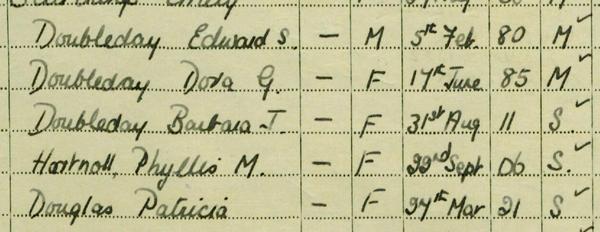 Doubleday Edward S. — M 5th Feb. 80 M ✓
Doubleday Dora G. — F 17th June 85 M ✓
Doubleday Barbara J. — F 31st Aug 11 S. ✓
Hartnoll, Phyllis M. — F 22nd Sept 06 S. ✓
Douglas Patricia — F 27th Mar 21 S ✓